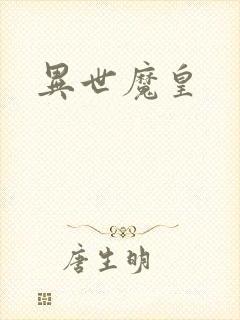 異世魔皇
唐生明